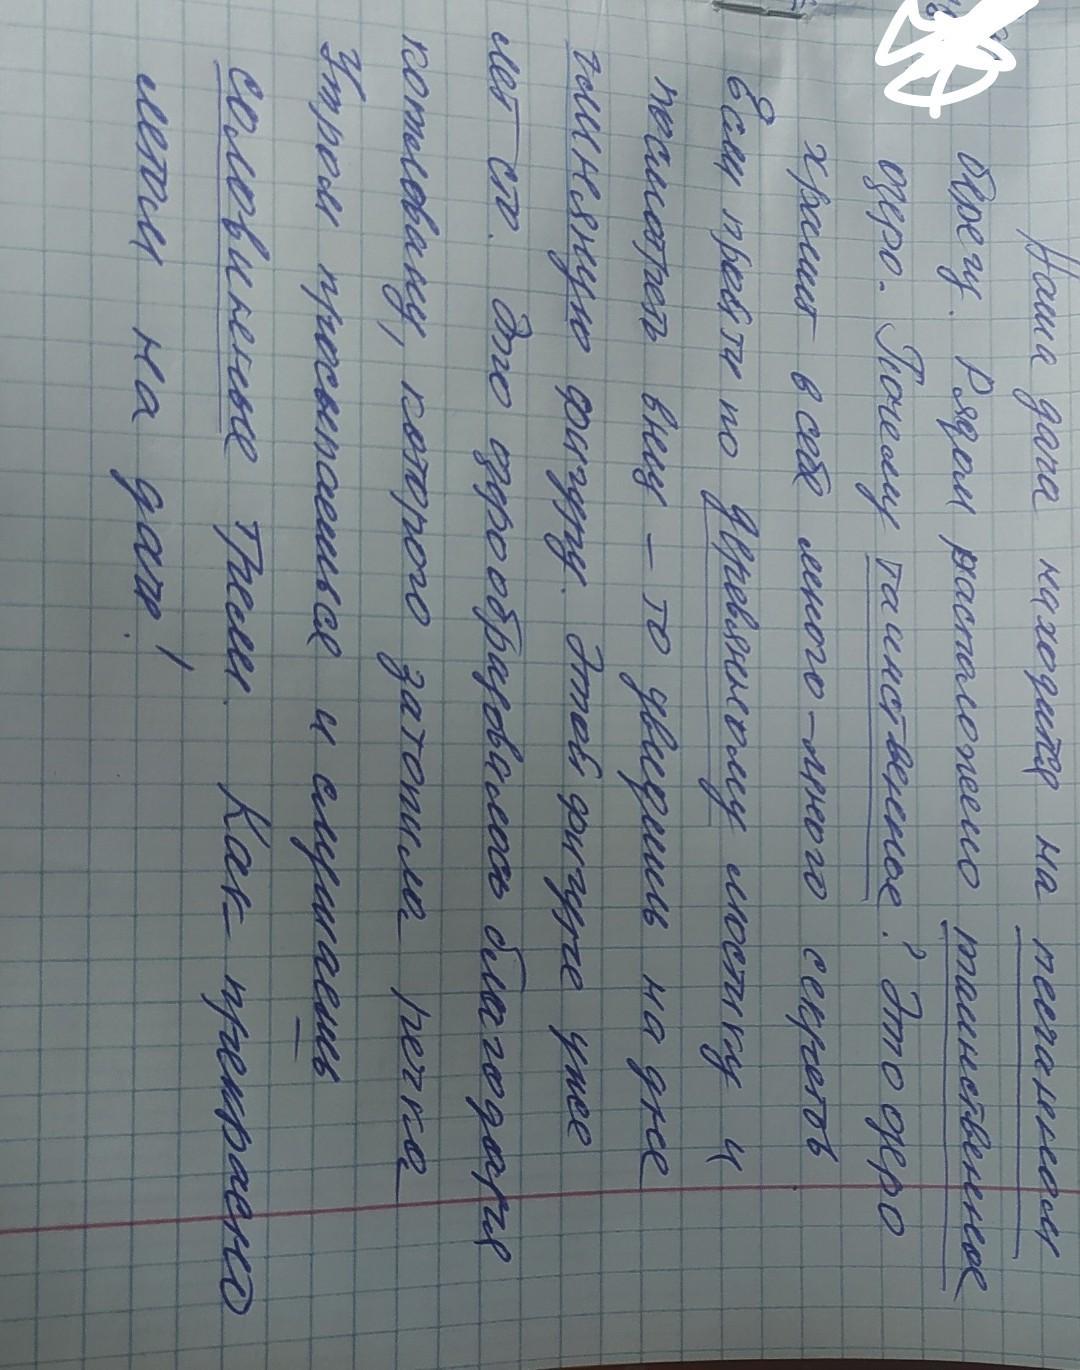 Наша дача находится на песчанном
берегу. Рядом расположено таинственное
озеро. Почему таинственное? Это озеро
хранит в себе много-много секретов
Если пройти по деревянному мостику и
посмотреть вниз – то увидишь на дне
глинянную фигуру. Этой фигуре уже
лет сто. Это озеро образовалось благодаря
котловану, которого затопила речка
Утром просыпаешься и слушаешь
соловьиные трели. Как прекрасно
летом на даче!